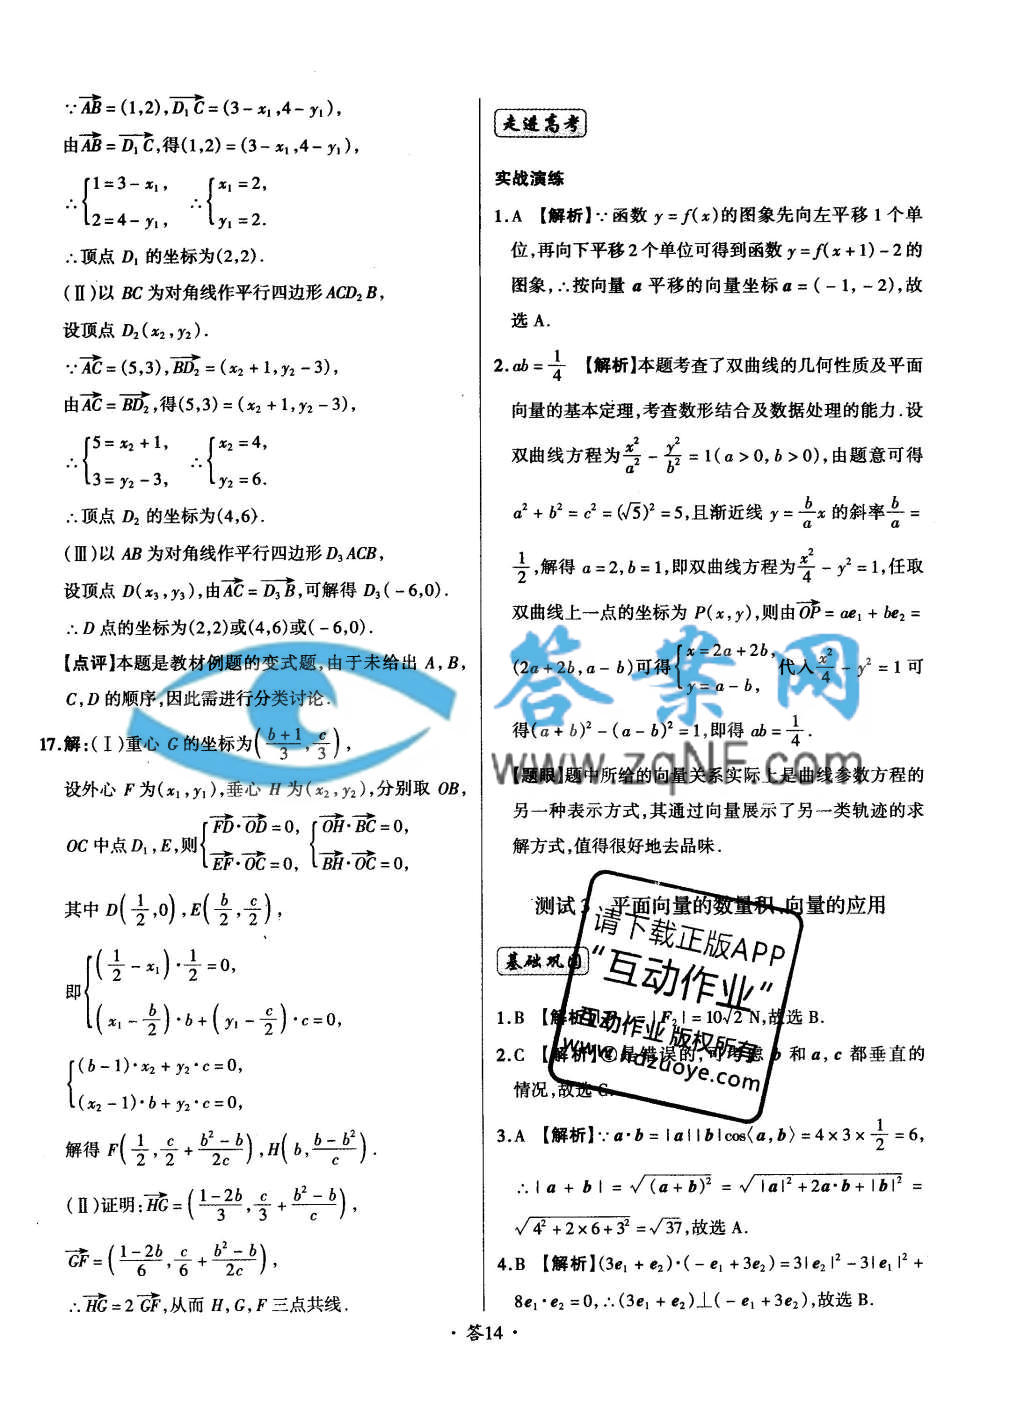 ∵AB=(1,2),D₁C=(3-x₁,4-y₁),
由AB=D₁C,得(1,2)=(3-x₁,4-y₁),
∴{1=3-x₁, 2=4-y₁, ∴{x₁=2, y₁=2.
∴顶点 D₁ 的坐标为(2,2).
(Ⅱ)以 BC 为对角线作平行四边形 ACD₂B,
设顶点 D₂(x₂,y₂).
∵AC=(5,3),BD₂=(x₂+1,y₂-3),
由AC=BD₂,得(5,3)=(x₂+1,y₂-3),
∴{5=x₂+1, 3=y₂-3, ∴{x₂=4, y₂=6.
∴顶点 D₂ 的坐标为(4,6).
(Ⅲ)以 AB 为对角线作平行四边形 D₃ACB,
设顶点 D(x₃,y₃),由AC=D₃B,可解得 D₃(-6,0).
∴D 点的坐标为(2,2)或(4,6)或(-6,0).
【点评】本题是教材例题的变式题,由于未给出 A,B,
C,D 的顺序,因此需进行分类讨论.
17.解:(Ⅰ)重心 G 的坐标为((b+1)/3,c/3),
设外心 F 为(x₁,y₁),垂心 H 为(x₂,y₂),分别取 OB,
OC 中点 D₁,E,则{FD·OD=0, EF·OC=0, {OH·BC=0, BH·OC=0,
其中 D(1/2,0),E(b/2,c/2),
即{(1/2-x₁)·1/2=0, (x₁-b/2)·b+(y₁-c/2)·c=0,
{(b-1)·x₂+y₂·c=0, (x₂-1)·b+y₂·c=0,
解得 F(1/2,c/2+(b²-b)/2c),H(b,(b-b²)/c).
(Ⅱ)证明:HG=((1-2b)/3,c/3+(b²-b)/c),
GF=((1-2b)/6,c/6+(b²-b)/2c),
∴HG=2GF,从而 H,G,F 三点共线.
走进高考
实战演练
1.A 【解析】∵函数 y=f(x)的图象先向左平移 1 个单
位,再向下平移 2 个单位可得到函数 y=f(x+1)-2 的
图象,∴按向量 a 平移的向量坐标 a=(-1,-2),故
选 A.
2.ab=1/4 【解析】本题考查了双曲线的几何性质及平面
向量的基本定理,考查数形结合及数据处理的能力.设
双曲线方程为x²/a²-y²/b²=1(a>0,b>0),由题意可得
a²+b²=c²=(√5)²=5,且渐近线 y=b/a x 的斜率b/a=
1/2,解得 a=2,b=1,即双曲线方程为x²/4-y²=1,任取
双曲线上一点的坐标为 P(x,y),则由OP=ae₁+be₂=
(2a+2b,a-b)可得{x=2a+2b, y=a-b, 代入x²/4-y²=1 可
得(a+b)²-(a-b)²=1,即得 ab=1/4.
【题眼】题中所给的向量关系实际上是曲线参数方程的
另一种表示方式,其通过向量展示了另一类轨迹的求
解方式,值得很好地去品味.
测试 3 平面向量的数量积、向量的应用
基础巩固
1.B 【解析】 |=|F₂|=10√2 N,故选 B.
2.C 【解析】 是错误的,可考虑 b 和 a,c 都垂直的
情况,故选 C.
3.A 【解析】∵a·b=|a||b|cos⟨a,b⟩=4×3×1/2=6,
∴|a+b|=√(a+b)²=√|a|²+2a·b+|b|²=
√4²+2×6+3²=√37,故选 A.
4.B 【解析】(3e₁+e₂)·(-e₁+3e₂)=3|e₂|²-3|e₁|²+
8e₁·e₂=0,∴(3e₁+e₂)⊥(-e₁+3e₂),故选 B.
·答14·
答案网
www.zqNF.com
请下载正版APP
“互动作业”
互动作业 版权所有
www.hdzuoye.com